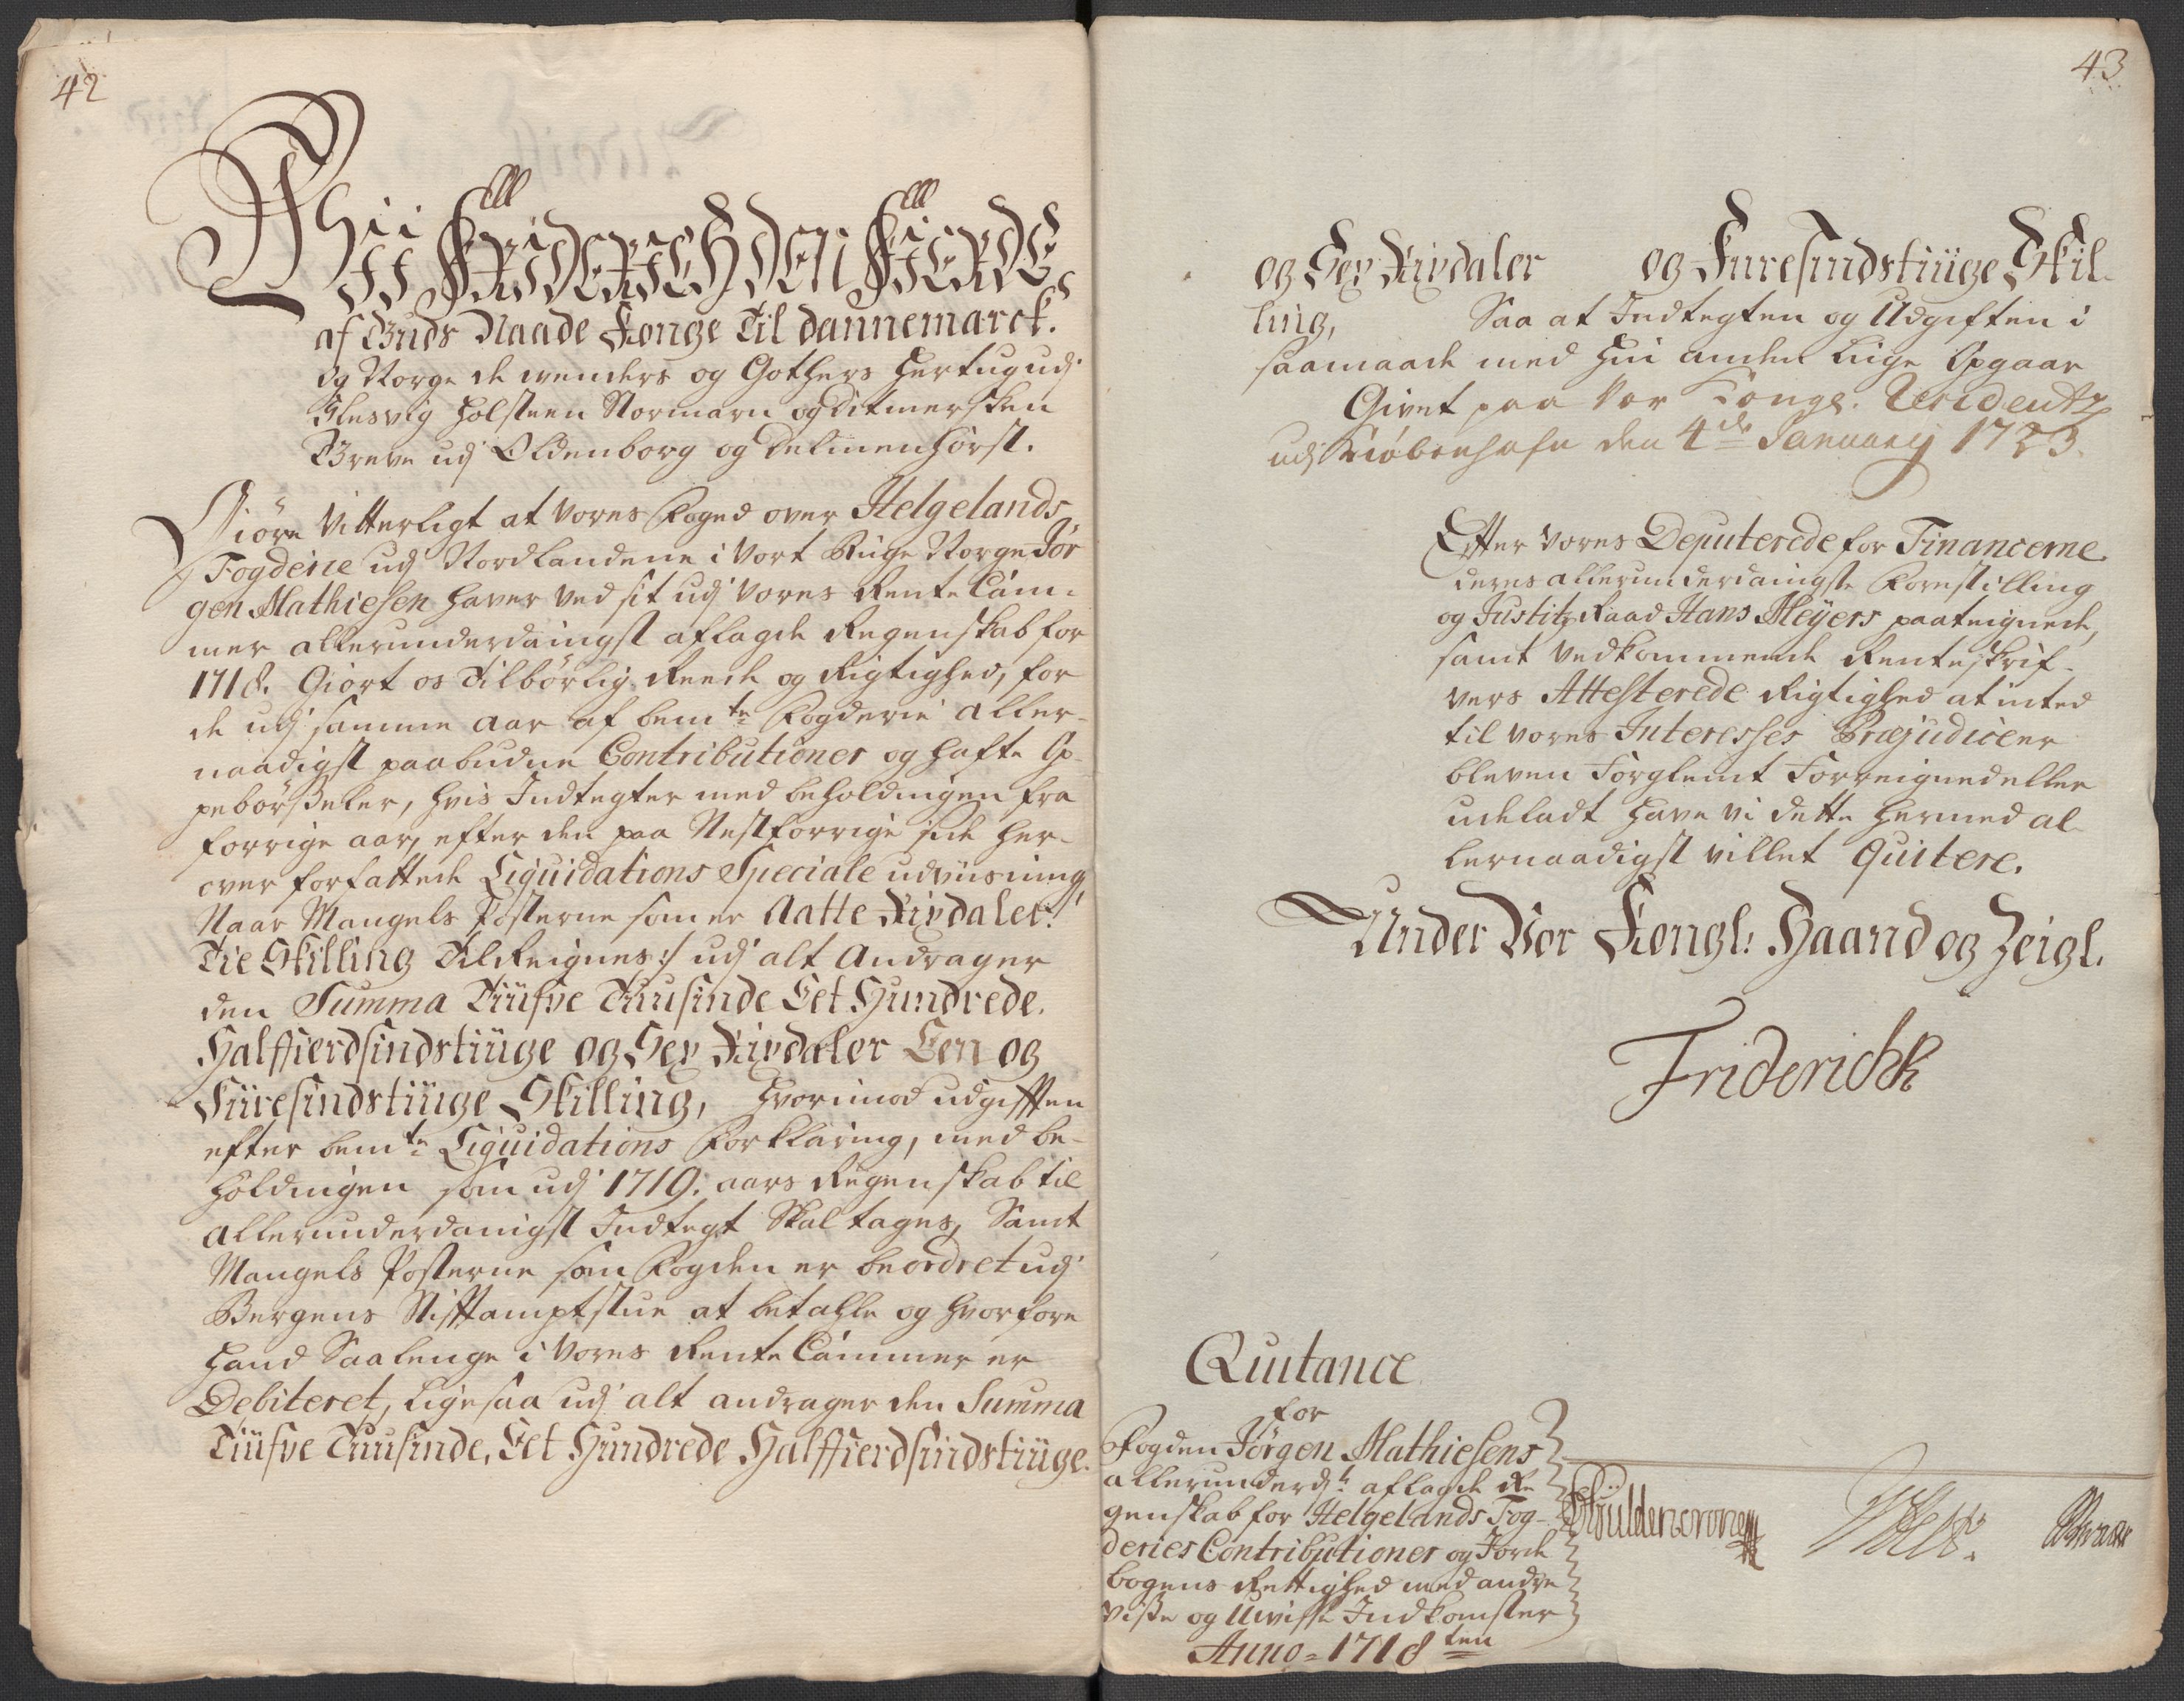 42
Vii
Vi FRIDERICH DEN FIERDE
af Guds Naade Konge Til Dannemarck.
og Norge de Wenders og Gothers Hertug udj
Slesvig Holsteen Stormarn og Ditmersken
Greve udj Oldenborg og Delmenhorst.
Giøre Vitterligt at vores Foged over Helgelands
Fogderie udj Nordlandene i Vort Riige Norge Jør
gen Mathiesen haver ved sit udj vores Rente Cam-
mer allerunderdanigst aflagde Regenskab for
1718. Giort os Tilbørlig Reede og Rigtighed, for
de udj samme aar af bemte Fogderie aller-
naadigst paabudne Contributioner og hafte Op-
pebørßeler, hvis Indtegter med beholdingen fra
forrige aar, efter den paa Nestforrige side her-
over forfattede Liquidations Speciale udviisning
Naar Mangels Posterne som er Aatte Rixdaler
Tie Skilling TilReignes:/ udj alt Andrager
den Summa Tiüfve Tuusinde Eet Hundrede.
Halffierdsindstiüge og Sex Rixdaler Een og
Fiiresindstiüge Skilling, Hvorimod udgifften
efter bemte Liquidations Forklaring, med be-
holdingen som udj 1719. aars Regenskab til
allerunderdanigst Indtegt Skal tages, Samt
Mangels Posterne som Fogden er beordret udj
Bergens Stifftamptstue at betahle og hvorfore
hand Saalenge i Vores Rente Cammer er
Debiteret, ligesaa udj alt andrager den Summa
Tiüfve Tuusinde, Eet Hundrede Halffierdsindstiüge.
43
og Sex Rixdaler og Fiiresindstiüge Skil-
ling, Saa at Indtegten og Udgiften i
saamaade med hin anden liige Opgaar
Givet paa Vor Kongl. Residentz
udj Kiøbenhafn den 4de January 1723.
Efter Vores Deputerede for Financerne
deres allerunderdanigste Forestilling
og Justitz Raad Hans Meÿers paateignede,
samt Vedkommende Renteskrif-
vers Attesterede Rigtighed at inted
til vores Interesses Præjudice er
bleven Forglemt Forreigned eller
udeladt have vi dette hermed al-
lernaadigst villet Quitere.
Under Vor Kongl: Haand og Zeigl.
Friderich R
Quitance
for
Fogden Jørgen Mathiesens
allerunderdt: aflagde Re
genskab for Helgelands Fog-
deries Contributioner og Jorde
bogens Rettighed med andre
viße og Uvisse Indkomster
Anno = 1718ten
Güldencrone